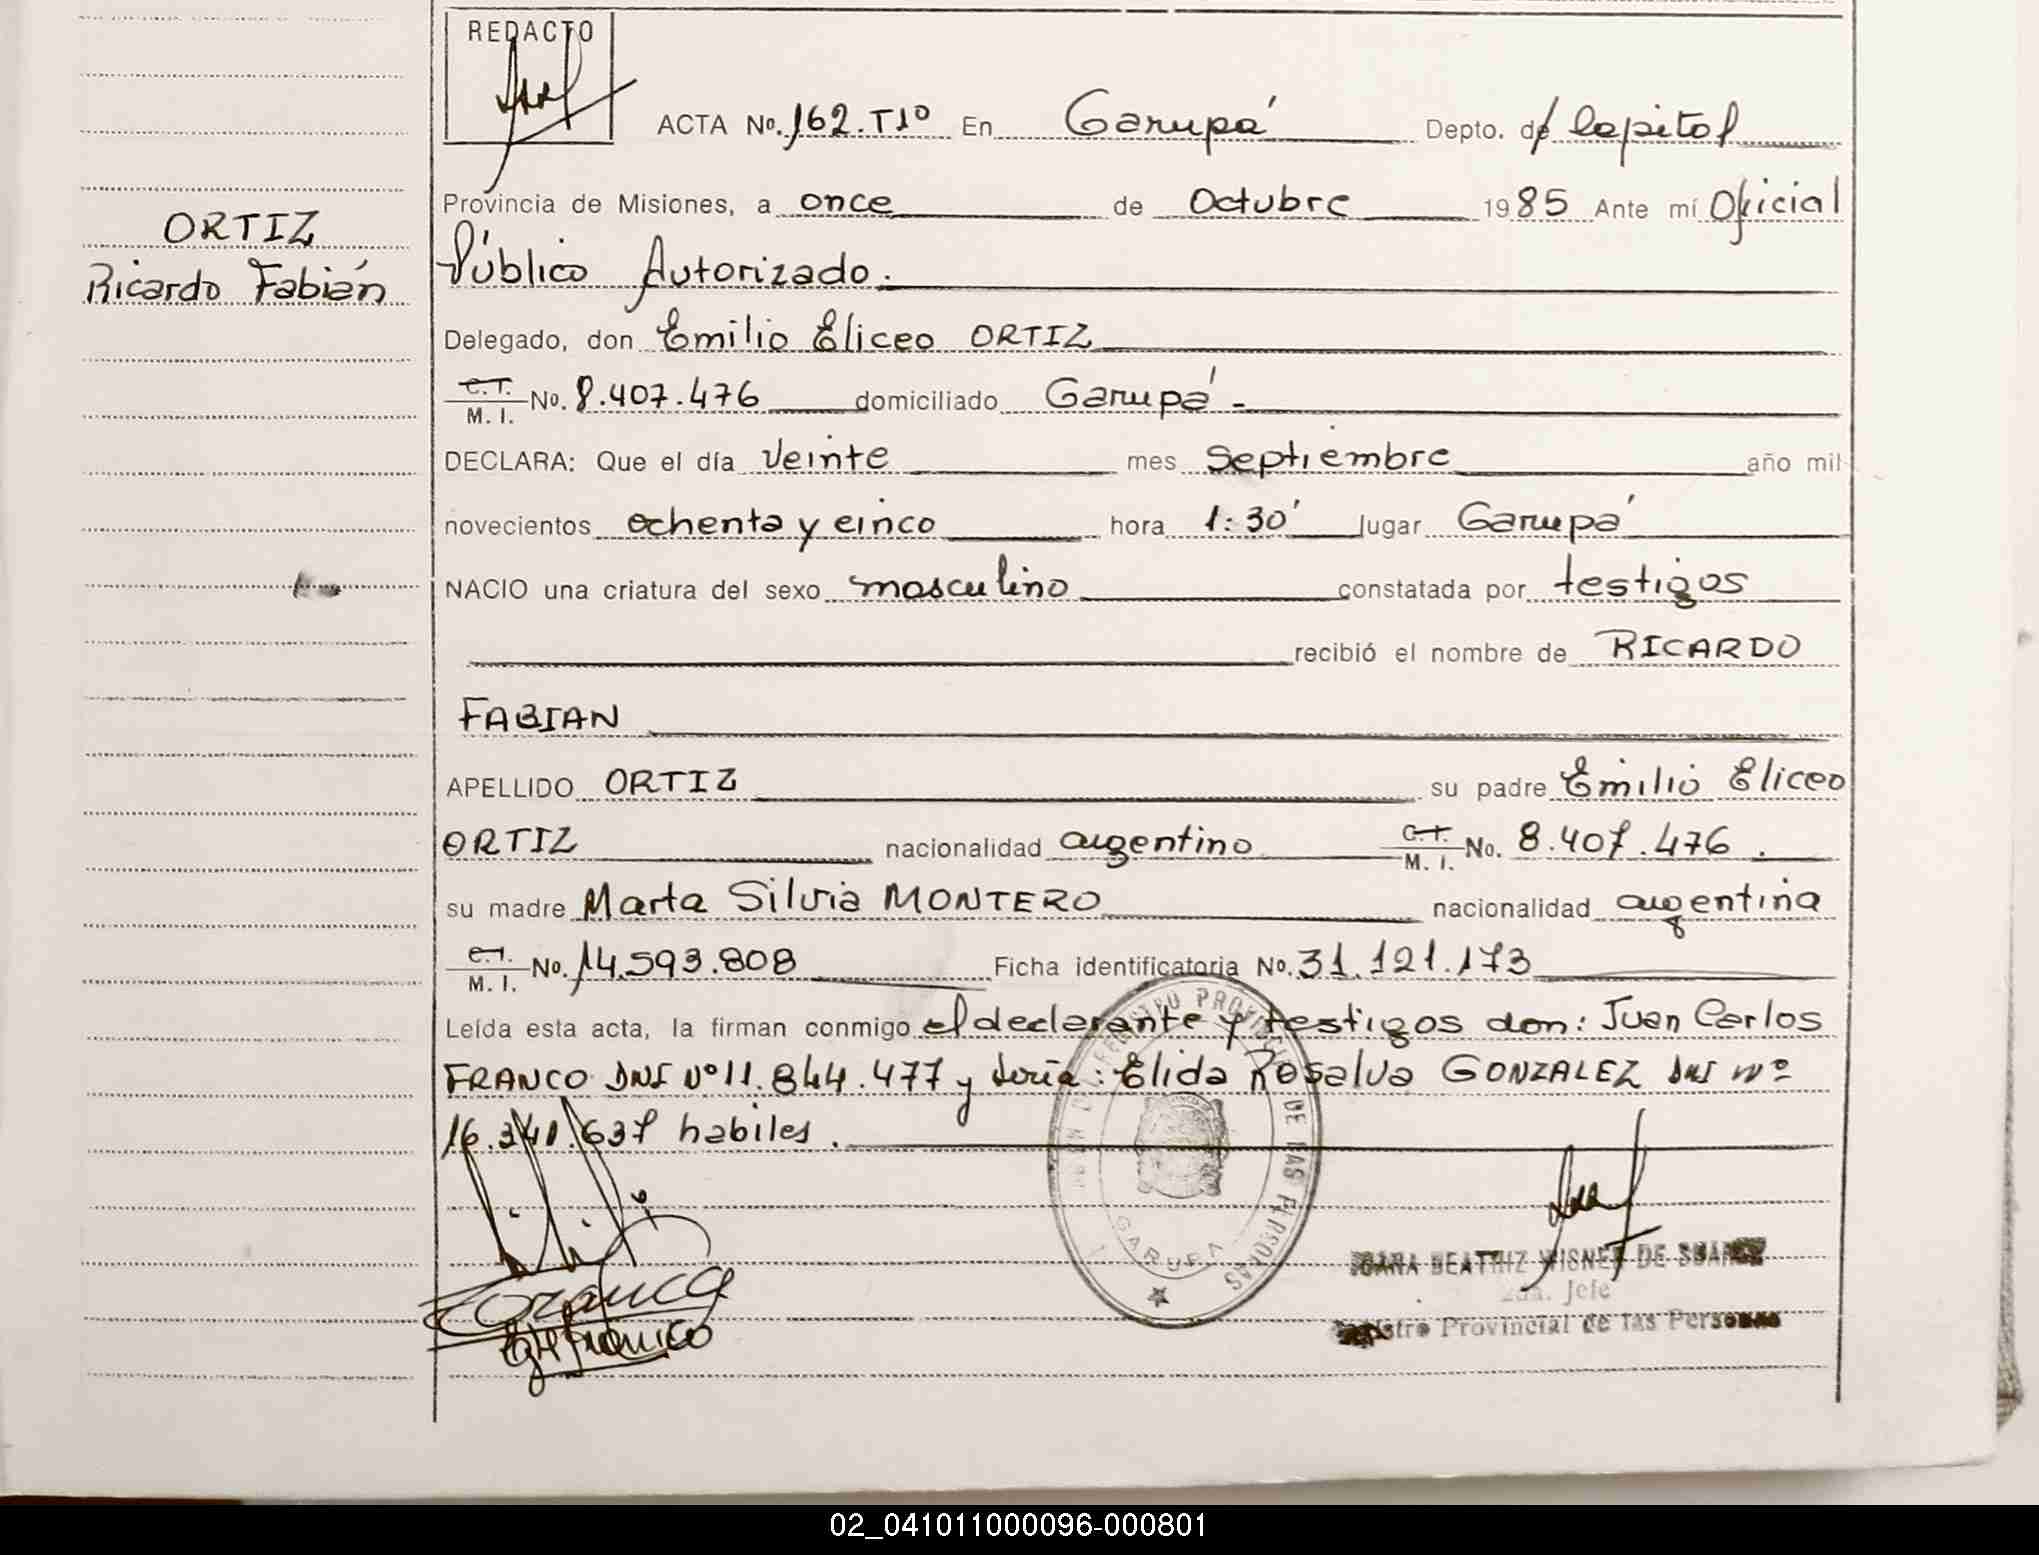 REDACTO
ACTA No. 162.T1º En Garupá Depto. de Capital
Provincia de Misiones, a once de Octubre 1985 Ante mí Oficial
ORTIZ
Ricardo Fabián
Público Autorizado.
Delegado, don Emilio Eliceo ORTIZ
C.I. M. I. No. 8.407.476 domiciliado Garupá -
DECLARA: Que el día Veinte mes Septiembre año mil
novecientos ochenta y cinco hora 1:30' lugar Garupá
NACIO una criatura del sexo masculino constatada por testigos
recibió el nombre de RICARDO
FABIAN
APELLIDO ORTIZ su padre Emilio Eliceo
ORTIZ nacionalidad argentino C.I. M. I. No. 8.407.476.
su madre Marta Silvia MONTERO nacionalidad argentina
C.I. M. I. No. 14.593.808 Ficha identificatoria No. 31.121.173
Leída esta acta, la firman conmigo el declarante y testigos don: Juan Carlos
FRANCO DNI Nº 11.844.477 y doña: Elida Rosalva GONZALEZ DNI Nº
16.341.637 habiles.
REGISTRO PROVINCIAL DE LAS PERSONAS
GARUPA
BEATRIZ DE SUAREZ
2da. Jefe
Registro Provincial de las Personas
02_041011000096-000801